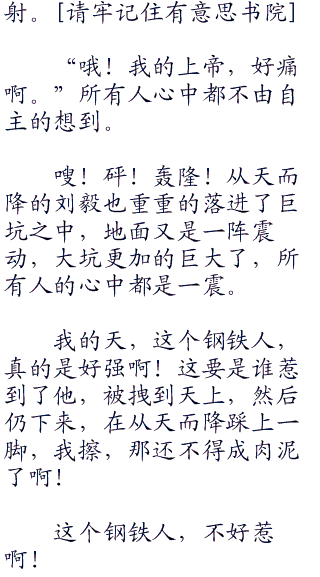 射。[请牢记住有意思书院]
“哦！我的上帝，好痛
啊。”所有人心中都不由自
主的想到。
嗖！砰！轰隆！从天而
降的刘毅也重重的落进了巨
坑之中，地面又是一阵震
动，大坑更加的巨大了，所
有人的心中都是一震。
我的天，这个钢铁人，
真的是好强啊！这要是谁惹
到了他，被拽到天上，然后
仍下来，在从天而降踩上一
脚，我擦，那还不得成肉泥
了啊！
这个钢铁人，不好惹
啊！